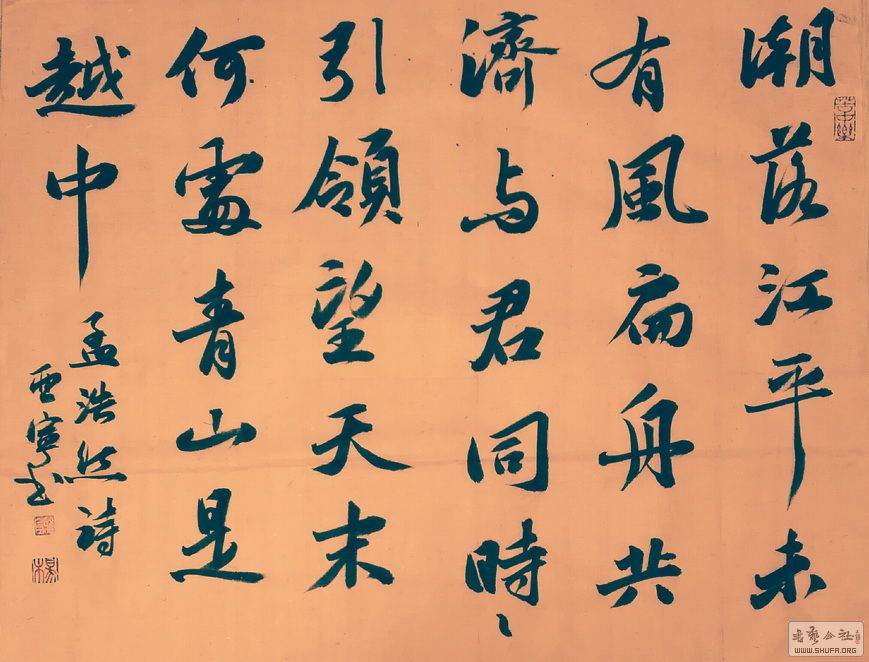 潮落江平未
有風扁舟共
濟与君同時〻
引領望天末
何處青山是
越中
孟浩然詩
寧书
書藝公社
WWW.SHUFA.ORG